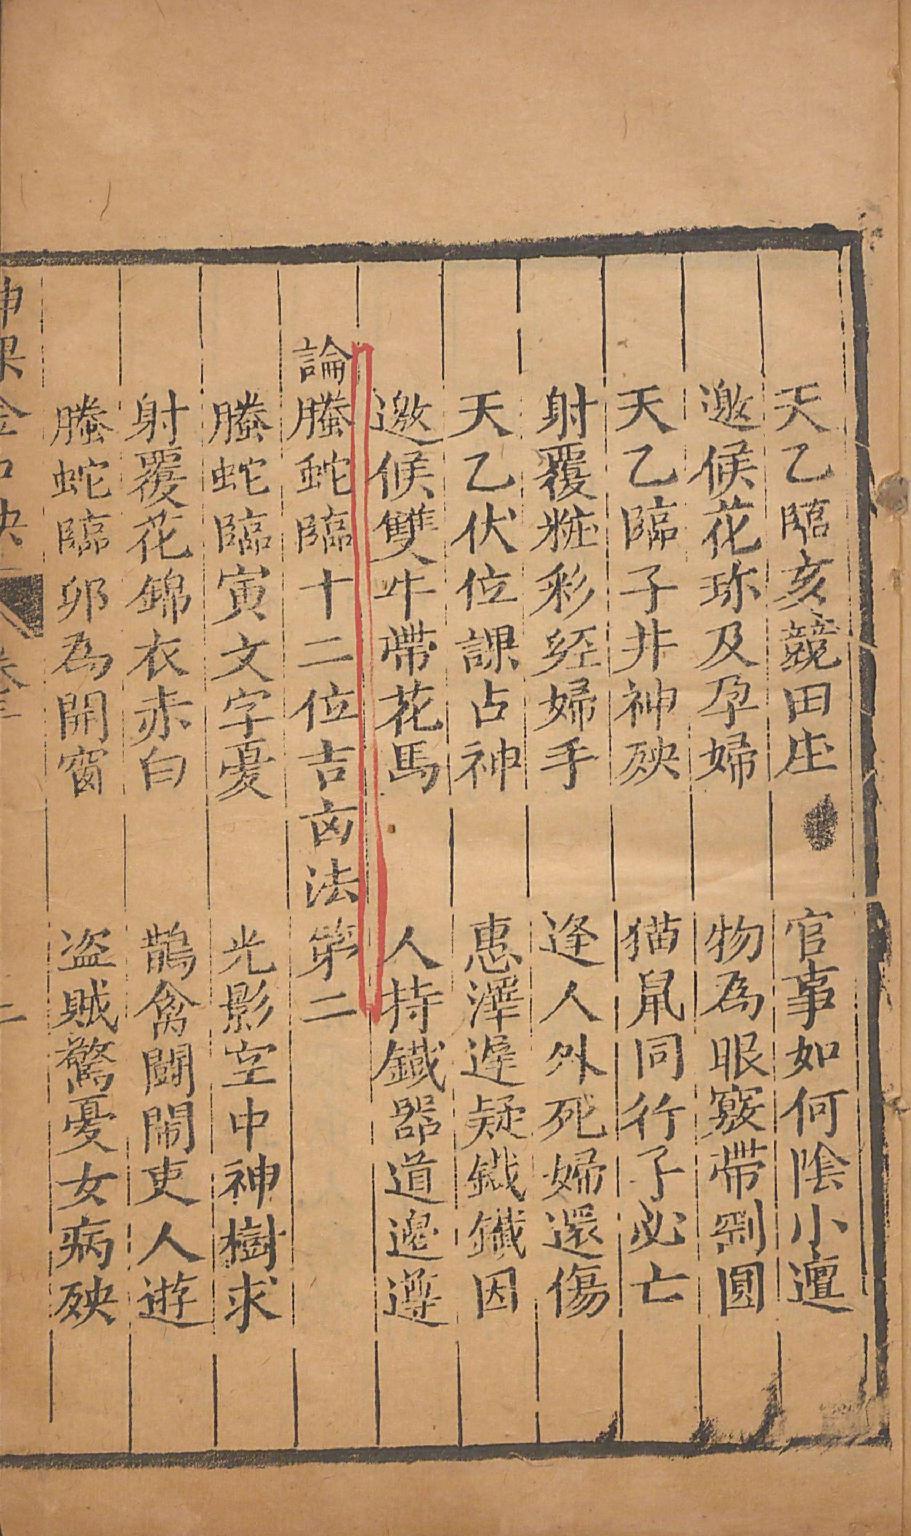 天乙臨亥競田庄 官事如何陰小邅
邀候花珎及孕婦 物為眼竅帶剛圓
天乙臨子井神殃 猫鼠同行子必亡
射覆粧彩經婦手 逢人外死婦還傷
天乙伏位課占神 惠澤遲疑鐵鑯因
邀候雙牛帶花馬 人持鐵器道邉遵
論螣蛇臨十二位吉㐫法第二
螣蛇臨寅文字憂 光影空中神樹求
射覆花錦衣赤白 鵲禽鬭鬧吏人遊
螣蛇臨卯為開窗 盗賊驚憂女病殃